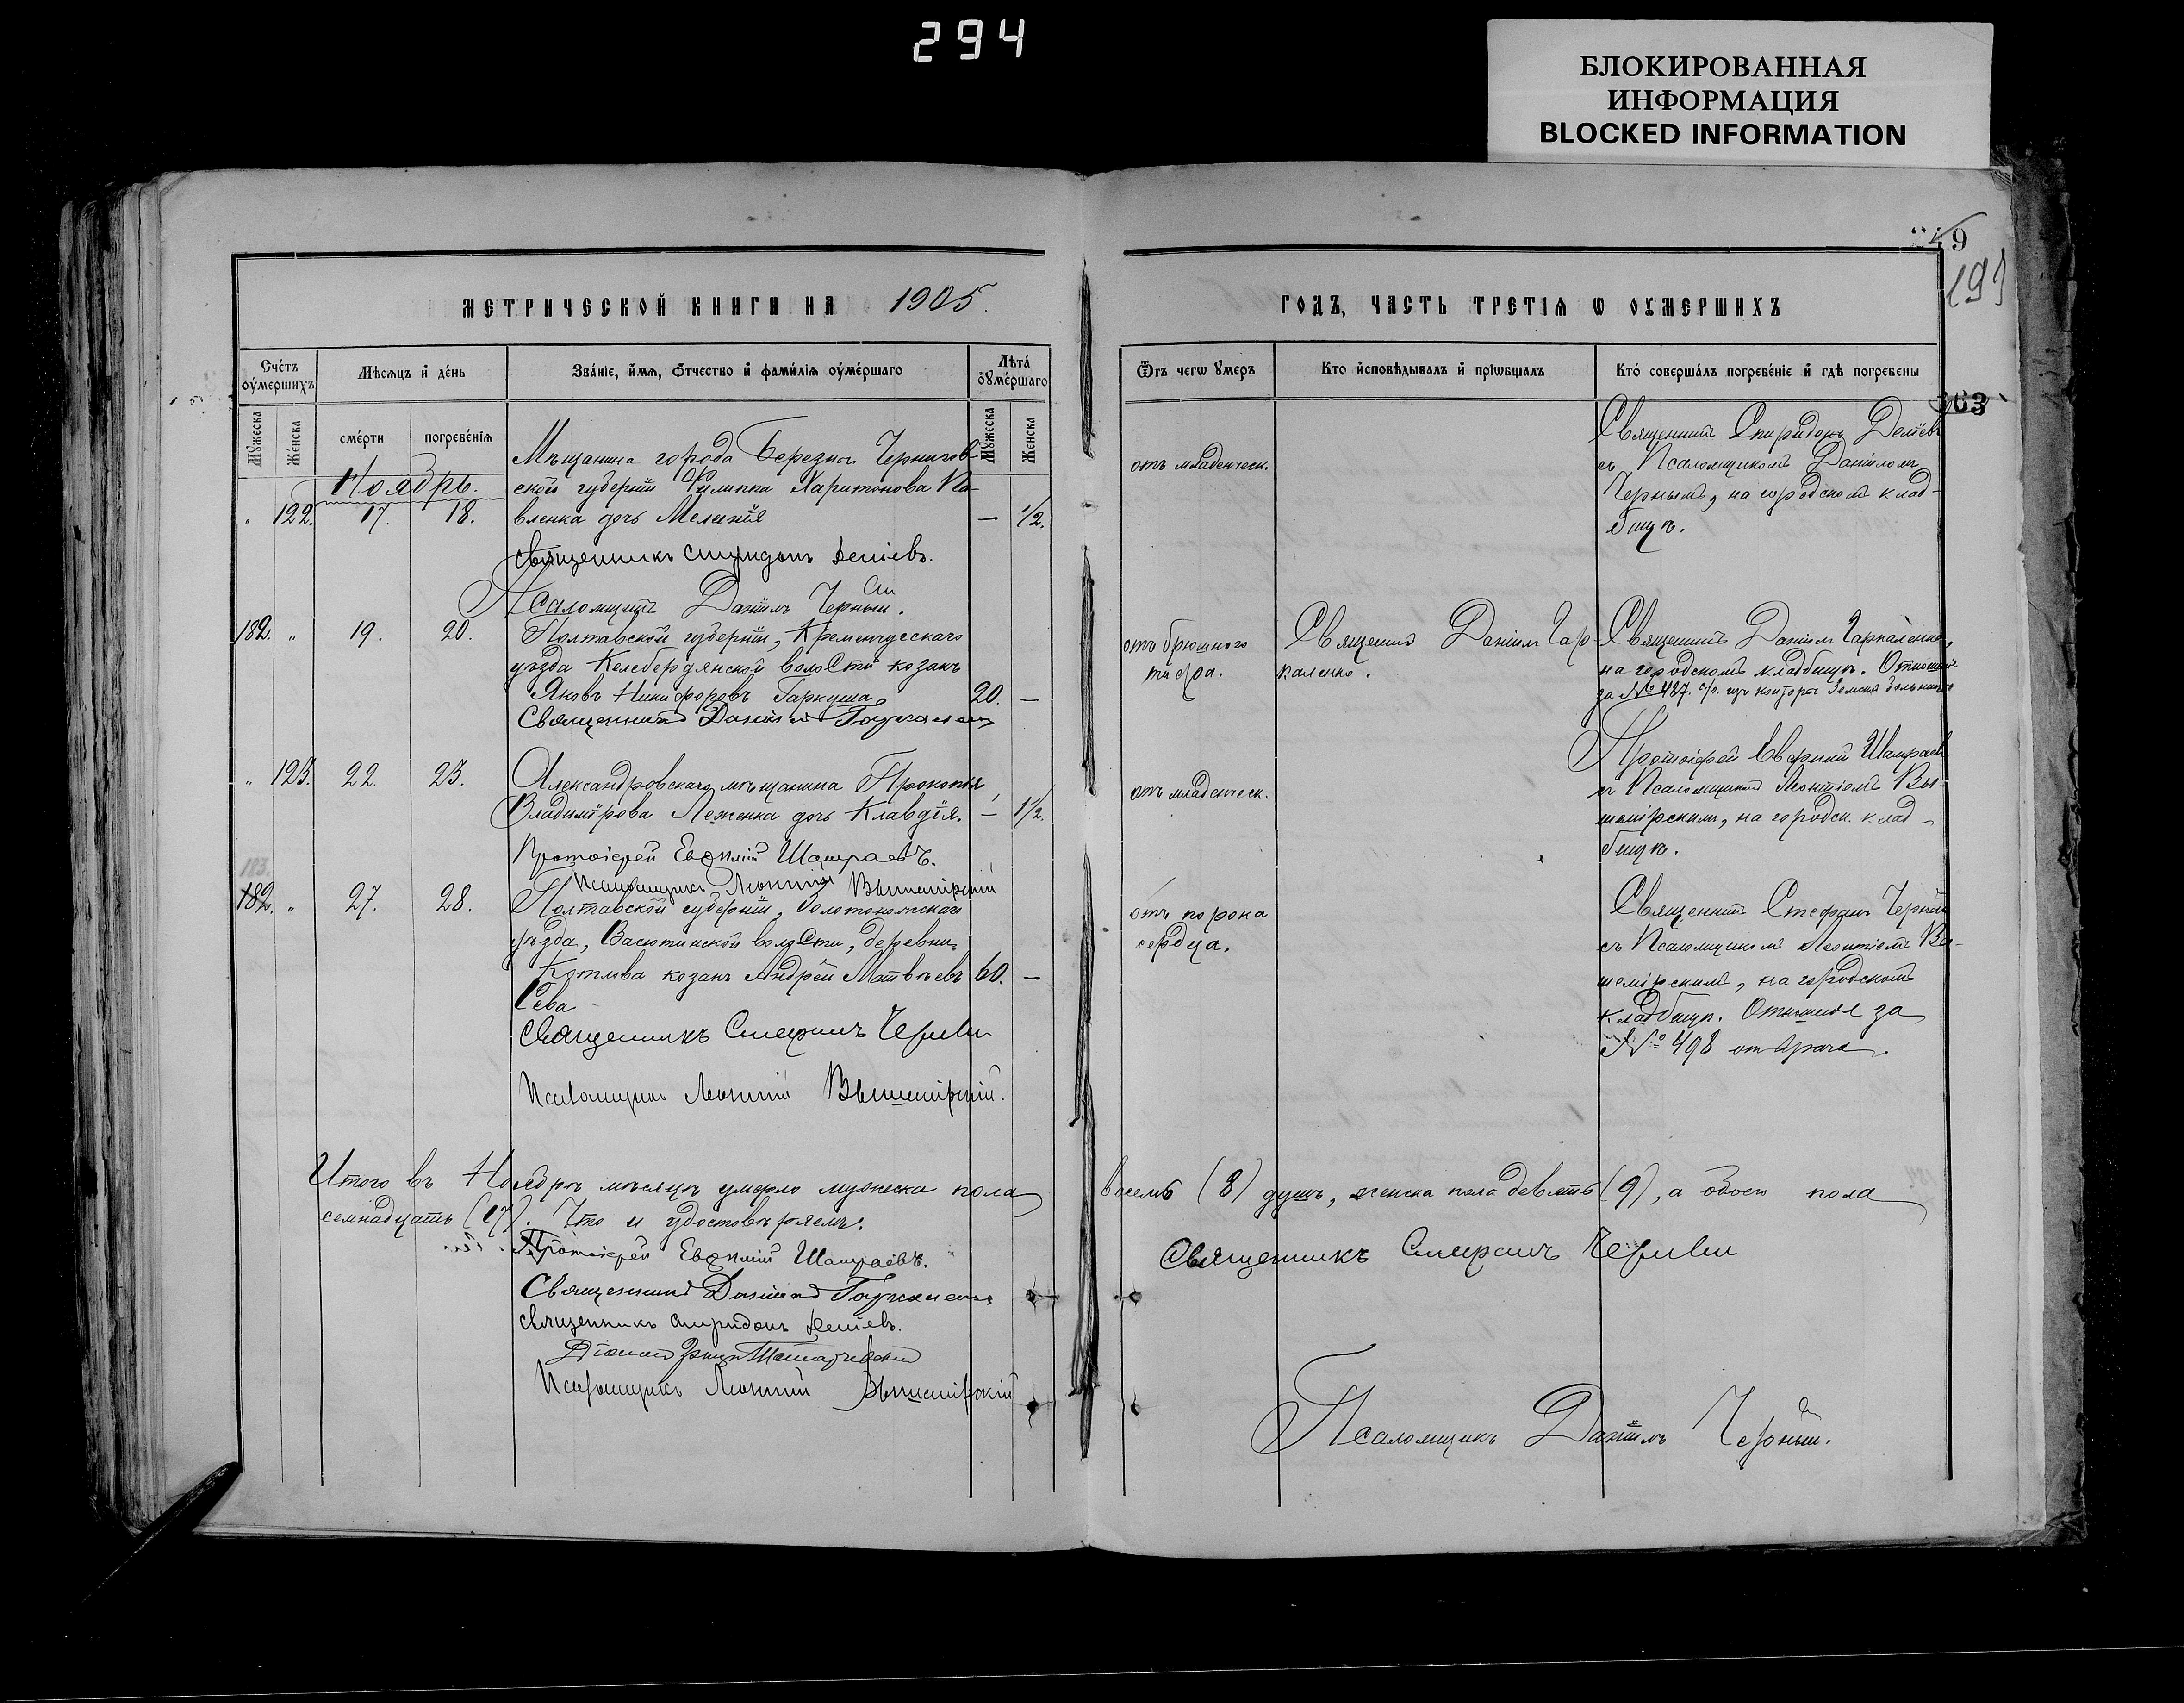 294
БЛОКИРОВАННАЯ
ИНФОРМАЦИЯ
BLOCKED INFORMATION
9
363
МЕТРИЧЕСКОЙ КНИГИ НА 1905.
ГОДЪ, ЧАСТЬ ТРЕТІЯ Ѡ ОУМЕРШИХЪ
Счетъ оумершихъ
Мѣсяцъ и день
Званіе, имя, отчество и фамилія оумершаго
Лѣта оумершаго
Ѿ чегѡ умеръ
Кто исповѣдывалъ и пріѡбщалъ
Кто совершалъ погребеніе и гдѣ погребены
Мужеска
Женска
смерти
погребенія
Мужеска
Женска
Ноябрь.
Мѣщанина города Березна Чернигов-
ской губерніи Филиппа Харитонова Па-
" 122. 17. 18. вленка дочь Меланія — 1/2.
отъ младенческ.
Священникъ Спиридонъ Деліевъ
съ Псаломщикомъ Даніиломъ
Чернымъ, на городскомъ клад-
бищѣ.
Священникъ Спиридонъ Деліевъ.
Псаломщикъ Даніилъ Черный.
182. " 19. 20. Полтавской губерніи, Кременчугскаго
уѣзда Келебердянской волости козакъ
Яковъ Никифоровъ Гаркуша 20. —
Священникъ Даніилъ
отъ брюшного
тифа.
Священникъ Даніилъ Гар-
каленко.
Священникъ Даніилъ Гаркаленко,
на городскомъ кладбищѣ. Отношеніе
за № 487. изъ конторы Земской больницы
" 123. 22. 23. Александровскаго мѣщанина Прокопія
Владимірова Леженка дочь Клавдія. — 1/2.
отъ младенческ.
Протоіерей Евфимій Шамраевъ
съ Псаломщикомъ Леонтіемъ Вы-
шемірскимъ, на городск. клад-
бищѣ.
Протоіерей Евфимій Шамраевъ.
Псаломщикъ Леонтій Вышемірскій
183.
182. " 27. 28. Полтавской губерніи, Золотоношскаго
уѣзда, Васютинской волости, деревни
козакъ Андрей Матвѣевъ 60. —
Сева
отъ порока
сердца.
Священникъ Стефанъ
съ Псаломщикомъ Леонтіемъ Вы-
шемірскимъ, на городскомъ
кладбищѣ. Отношеніе за
№ 498 отъ врача.
Священникъ Стефанъ
Псаломщикъ Леонтій Вышемірскій.
Итого въ Ноябрѣ мѣсяцѣ умерло мужеска пола восемь (8) душъ, женска пола девять (9), а обоего пола
семнадцать (17). Что и удостовѣряемъ:
Протоіерей Евфимій Шамраевъ.
Священникъ Стефанъ
Священникъ Даніилъ
Священникъ Спиридонъ Деліевъ.
Псаломщикъ Леонтій Вышемірскій
Псаломщикъ Даніилъ Черный.